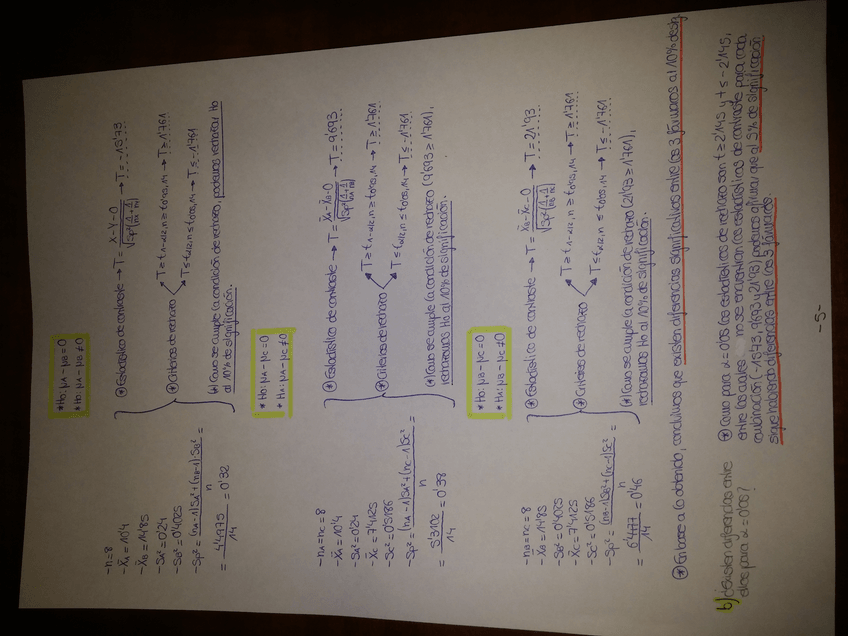 * H0: μA - μB = 0
* H0: μA - μB ≠ 0
- n = 8
- X̄A = 10'4
- X̄B = 14'85
- SA² = 0'24
- SB² = 0'4025
- Sp² = (nA-1)SA² + (nB-1)·SB² / n =
= 4'4975 / 14 = 0'32
* Estadístico de contraste → T = X - Y - 0 / √Sp²(1/n + 1/n) → T = -15'73
* Criterios de rechazo
T ≥ t1-α/2, n ≥ t0'05, 14 → T ≥ 1'761
T ≤ tα/2, n ≤ t0'05, 14 → T ≤ -1'761
(*) Como se cumple la condición de rechazo, podemos rechazar H0
al 10% de significación.
* H0: μA - μC = 0
* HA: μA - μC ≠ 0
- nA = nC = 8
- X̄A = 10'4
- SA² = 0'24
- X̄C = 7'4125
- SC² = 0'5186
- Sp² = (nA-1)SA² + (nC-1)SC² / n =
= 5'3102 / 14 = 0'38
* Estadístico de contraste → T = X̄A - X̄C - 0 / √Sp²(1/nA + 1/nC) → T = 9'693
* Criterios de rechazo
T ≥ t1-α/2, n ≥ t0'05, 14 → T ≥ 1'761
T ≤ tα/2, n ≤ t0'05, 14 → T ≤ -1'761
(*) Como se cumple la condición de rechazo (9'693 ≥ 1'761),
rechazamos H0 al 10% de significación.
* H0: μB - μC = 0
* HA: μB - μC ≠ 0
- nB = nC = 8
- X̄B = 14'85
- SB² = 0'4025
- X̄C = 7'4125
- SC² = 0'5186
- Sp² = (nB-1)SB² + (nC-1)SC² / n =
= 6'4477 / 14 = 0'46
* Estadístico de contraste → T = X̄B - X̄C - 0 / √Sp²(1/n + 1/n) → T = 21'93
* Criterios de rechazo
T ≥ t1-α/2, n ≥ t0'05, 14 → T ≥ 1'761
T ≤ tα/2, n ≤ t0'05, 14 → T ≤ -1'761
(*) Como se cumple la condición de rechazo (21'93 ≥ 1'761),
rechazamos H0 al 10% de significación.
* En base a lo obtenido, concluimos que existen diferencias significativas entre los 3 fármacos al 10% de sig.
b) ¿Existen diferencias entre
ellos para α = 0'05?
* Como para α = 0'05 los estadísticos de rechazo son t ≥ 2'145 y t ≤ -2'145,
entre los cuales no se encuentran los estadísticos de contraste para cada
combinación (-15'73, 9'693 y 21'93) podemos afirmar que al 5% de significación
sigue habiendo diferencias entre los 3 fármacos.
- 5 -